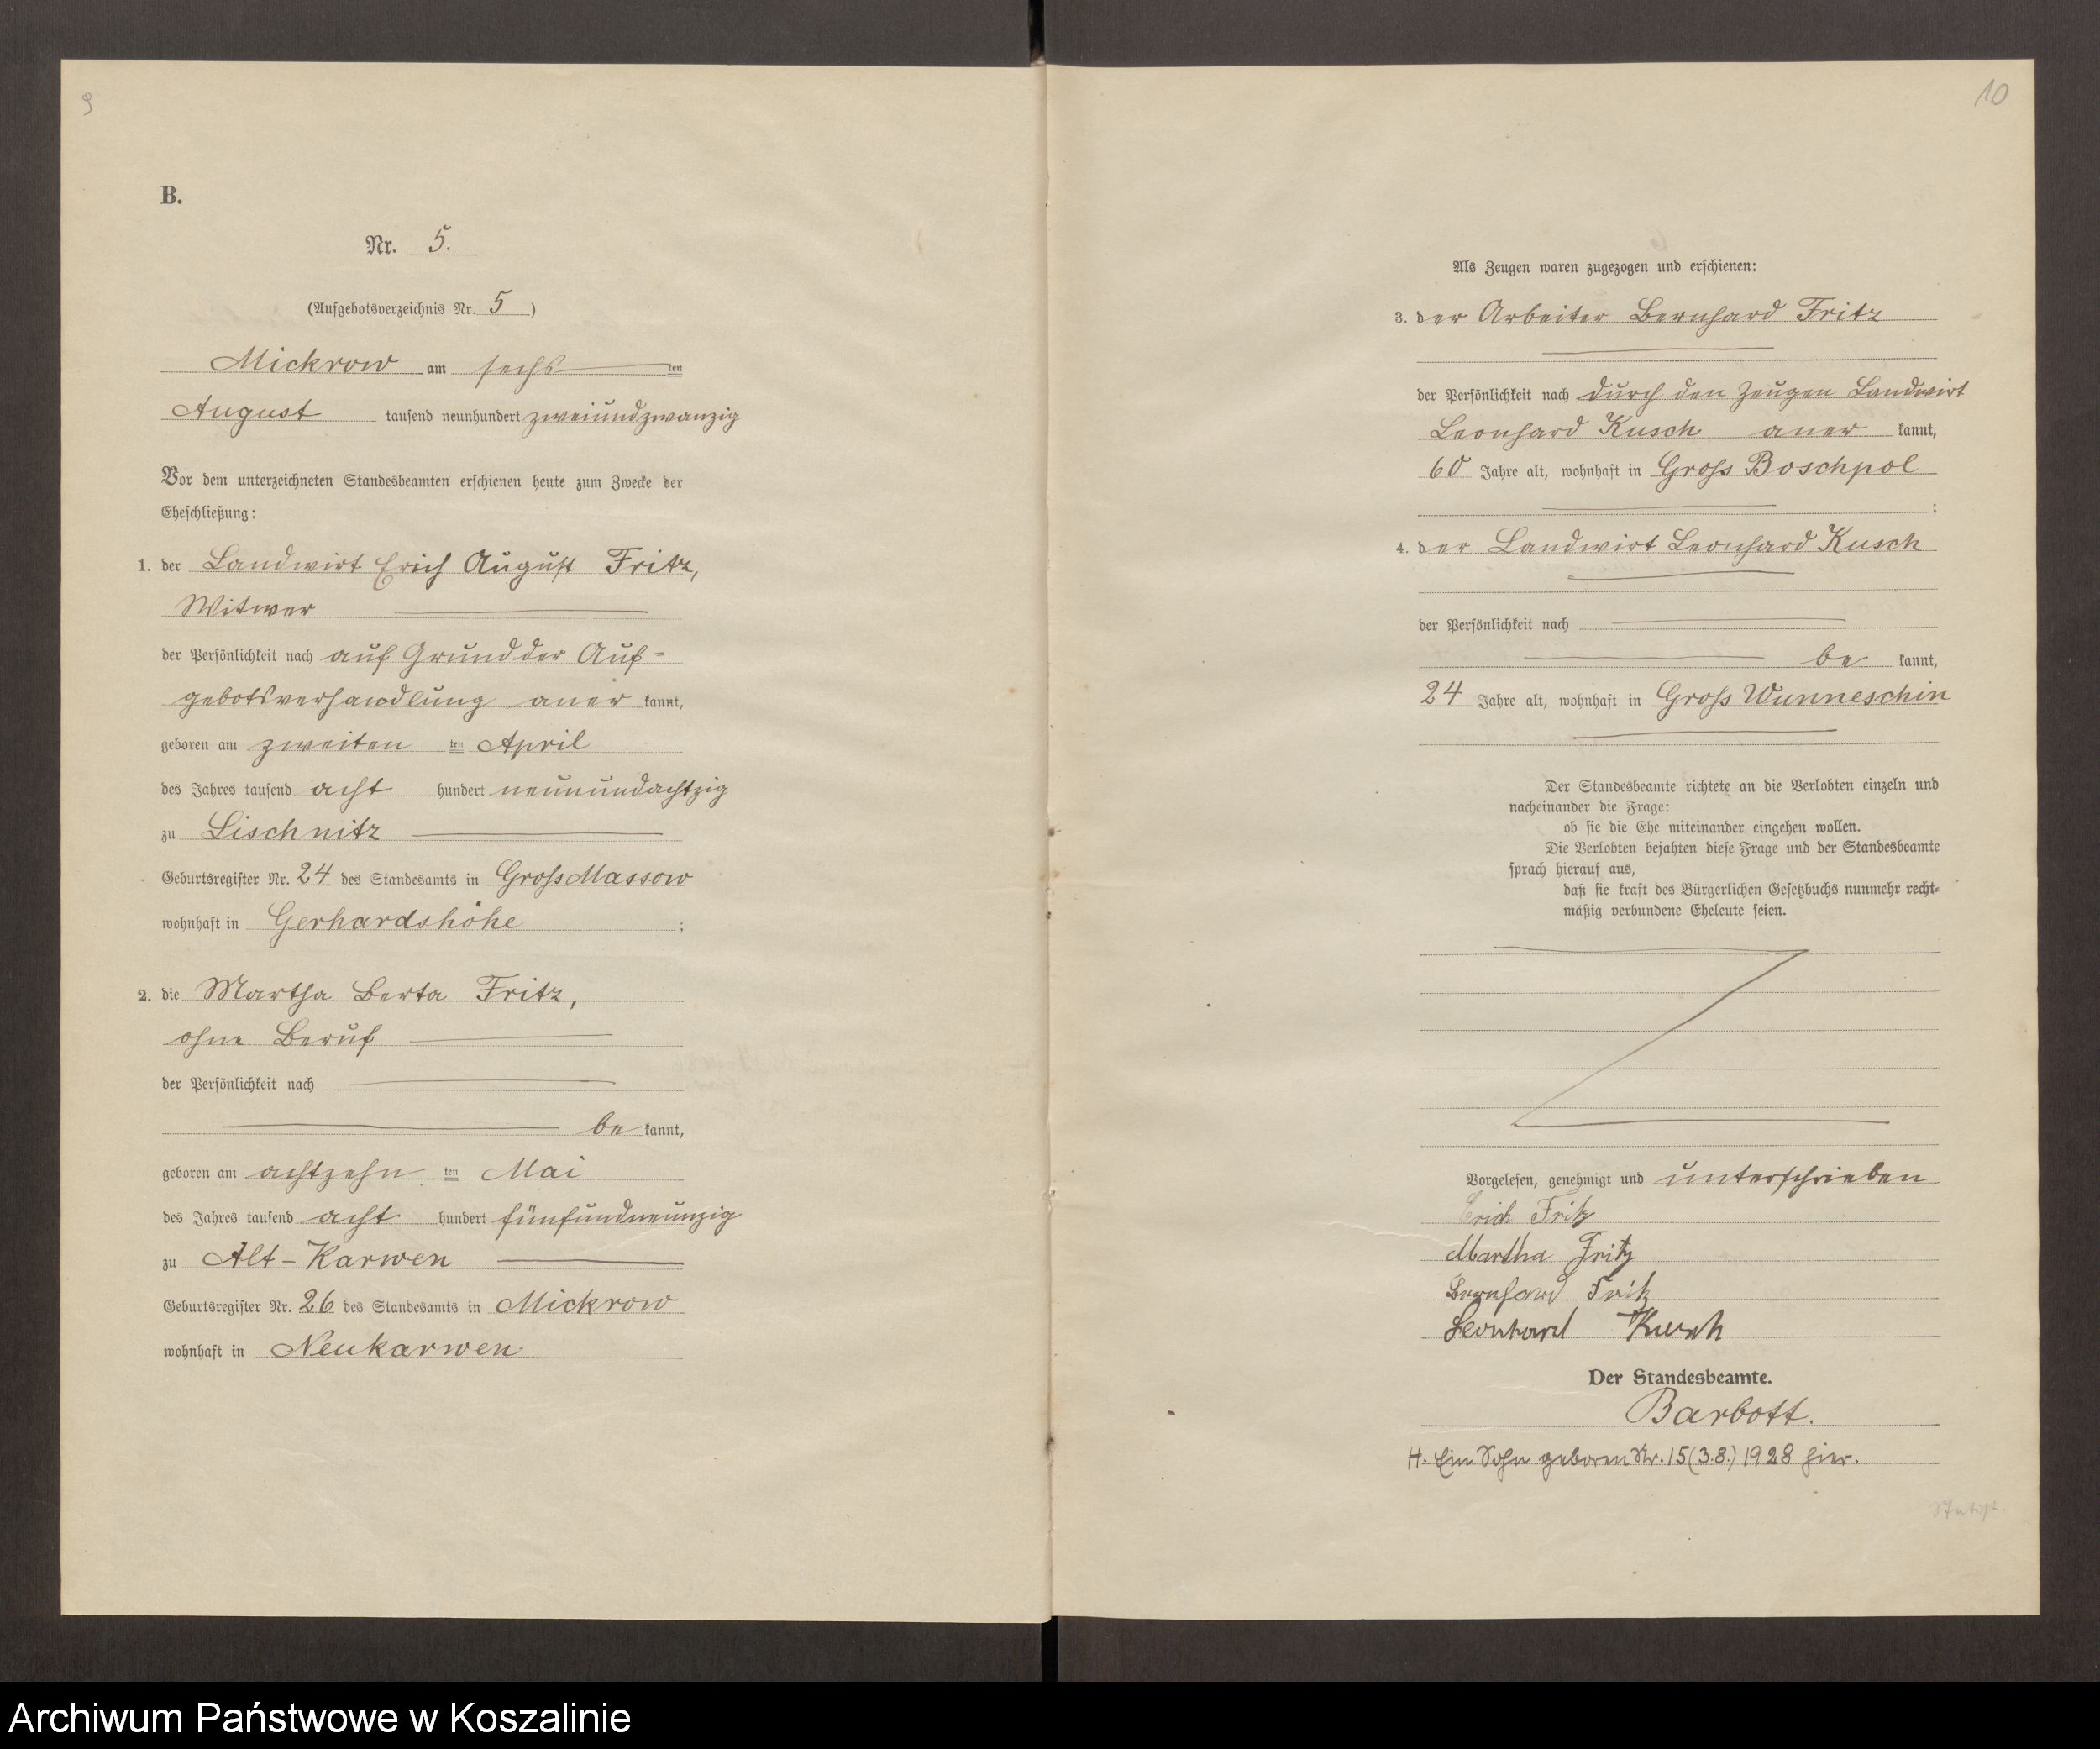 9
B.
Nr. 5.
(Aufgebotsverzeichnis Nr. 5)
Mickrow am sechs ten
August tausend neunhundert zweiundzwanzig
Vor dem unterzeichneten Standesbeamten erschienen heute zum Zwecke der
Eheschließung:
1. der Landwirt Erich August Fritz,
Witwer
der Persönlichkeit nach auf Grund der Auf-
gebotsverhandlung aner kannt,
geboren am zweiten ten April
des Jahres tausend acht hundert neunundachtzig
zu Lischnitz
Geburtsregister Nr. 24 des Standesamts in Gross Massow
wohnhaft in Gerhardshöhe ;
2. die Martha Berta Fritz,
ohne Beruf
der Persönlichkeit nach
be kannt,
geboren am achtzehn ten Mai
des Jahres tausend acht hundert fünfundneunzig
zu Alt-Karwen
Geburtsregister Nr. 26 des Standesamts in Mickrow
wohnhaft in Neukarwen
10
Als Zeugen waren zugezogen und erschienen:
3. der Arbeiter Bernhard Fritz
der Persönlichkeit nach durch den Zeugen Landwirt
Leonhard Kusch aner kannt,
60 Jahre alt, wohnhaft in Gross Boschpol
;
4. der Landwirt Leonhard Kusch
der Persönlichkeit nach
be kannt,
24 Jahre alt, wohnhaft in Gross Wunneschin
Der Standesbeamte richtete an die Verlobten einzeln und
nacheinander die Frage:
ob sie die Ehe miteinander eingehen wollen.
Die Verlobten bejahten diese Frage und der Standesbeamte
sprach hierauf aus,
daß sie kraft des Bürgerlichen Gesetzbuchs nunmehr recht-
mäßig verbundene Eheleute seien.
Vorgelesen, genehmigt und unterschrieben
Erich Fritz
Martha Fritz
Bernhard Fritz
Leonhard Kusch
Der Standesbeamte.
Barbott.
H. Ein Sohn geboren Nr. 15 (3.8.) 1928 hier.
Archiwum Państwowe w Koszalinie